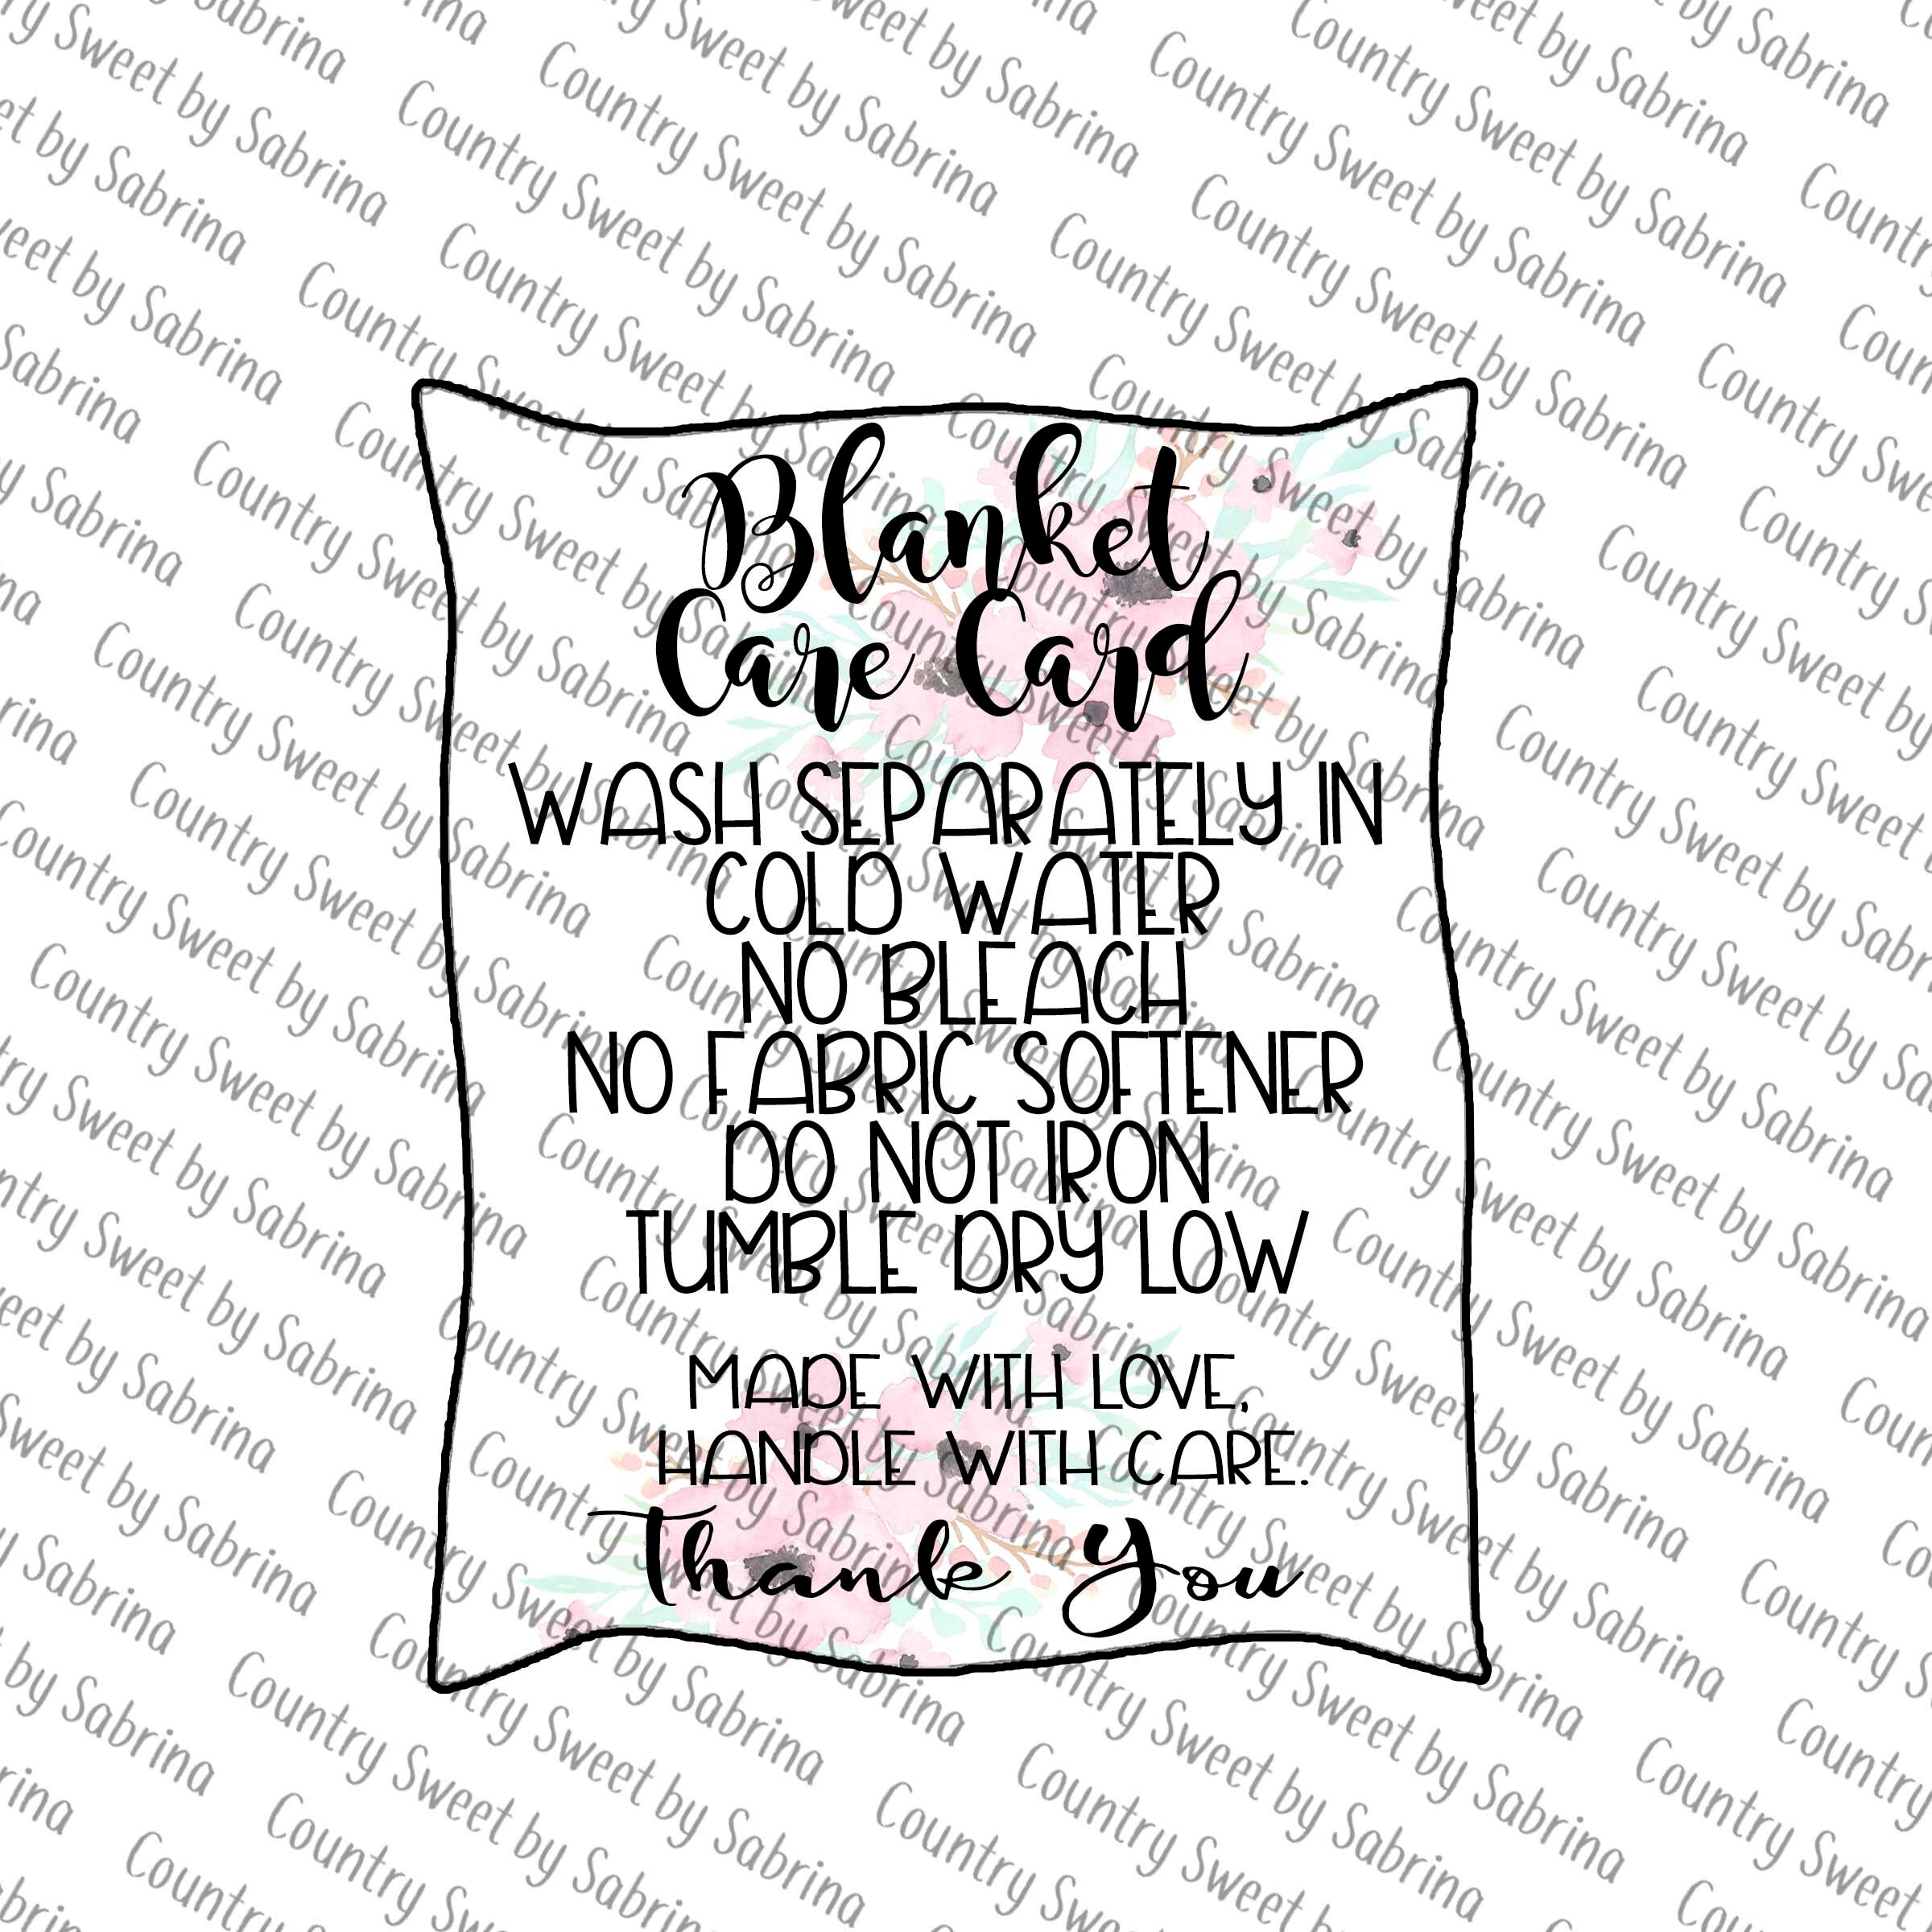 Blanket
Care Card
WASH SEPARATELY IN
COLD WATER
NO BLEACH
NO FABRIC SOFTENER
DO NOT IRON
TUMBLE DRY LOW
MADE WITH LOVE,
HANDLE WITH CARE.
Thank You
Country Sweet by Sabrina